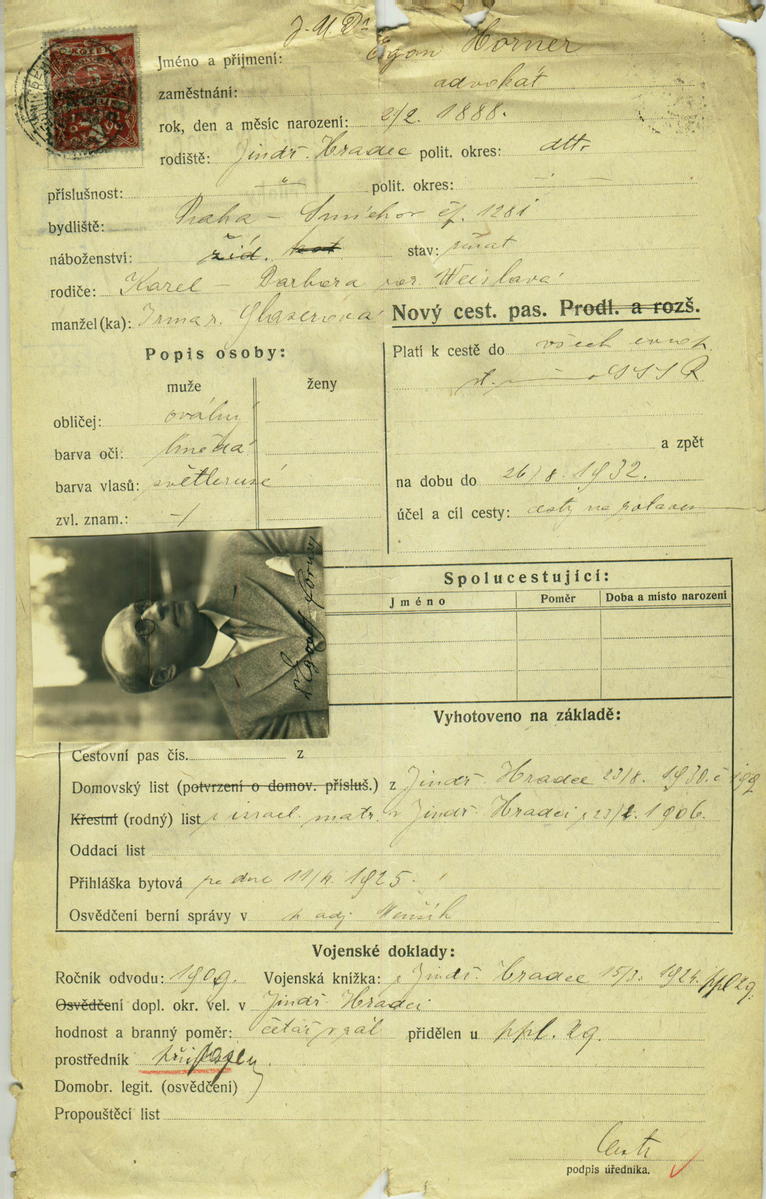 J. U. Dr
Jméno a příjmení: Egon Horner
zaměstnání: advokát
rok, den a měsíc narození: 2/2. 1888.
rodiště: Jindř. Hradec polit. okres: dtto
příslušnost: " polit. okres: —
bydliště: Praha - Smíchov čp. 1281
náboženství: žid. stav: ženat
rodiče: Karel - Barbora roz. Weislová
manžel(ka): Irma r. Glaserová
Nový cest. pas. Prodl. a rozš.
Popis osoby:
muže ženy
obličej: oválný
barva očí: hnědá
barva vlasů: světlerusé
zvl. znam.: -/
Platí k cestě do všech evrop.
st. SSSR
a zpět
na dobu do 26/8. 1932.
účel a cíl cesty: cesty na
Spolucestující:
Jméno Poměr Doba a místo narození
Vyhotoveno na základě:
Cestovní pas čís. z
Domovský list (potvrzení o domov. přísluš.) z Jindř. Hradce 23/8. 1930. č 199
Křestní (rodný) list z israel. matr. v Jindř. Hradci z 23/2. 1906.
Oddací list
Přihláška bytová ze dne 11/4. 1925.
Osvědčení berní správy v
Vojenské doklady:
Ročník odvodu: 1909. Vojenská knížka: z Jindř. Hradce 15/3. 1924. ppl 29.
Osvědčení dopl. okr. vel. v Jindř. Hradci
hodnost a branný poměr: četař přidělen u ppl. 29.
prostředník
Domobr. legit. (osvědčení)
Propouštěcí list
podpis úředníka.